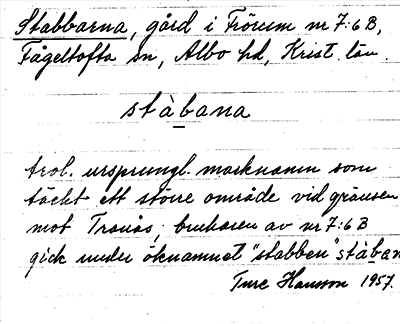 Stabbarna, gård i Frörum nr 7:6 B,
Fågeltofta sn, Albo hd, Krist. län.
stàbana
trol. ursprungl. marknamn som
täckt ett större område vid gränsen
mot Tranås; brukaren av nr 7:6 B
gick under öknamnet "stabben" stàban
Ture Hansson 1957.